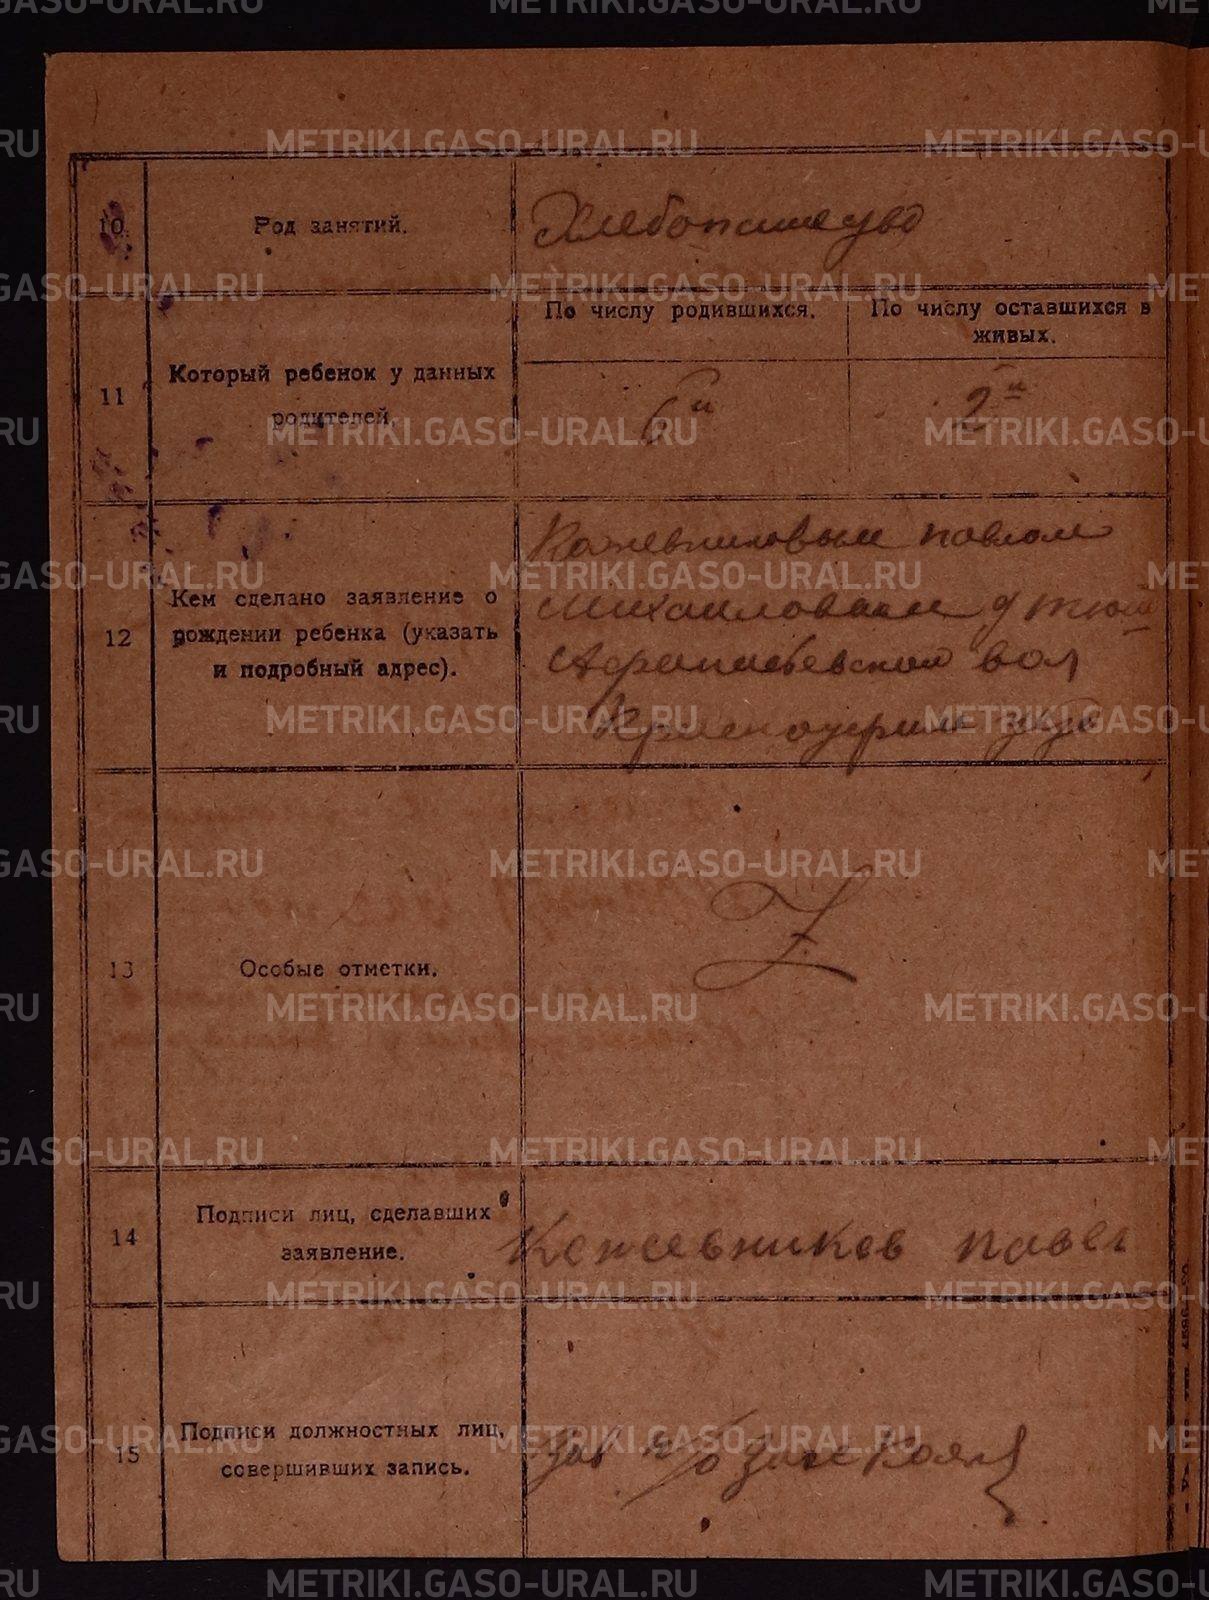 METRIKI.GASO-URAL.RU
10
Род занятий.
Хлебопашество
11
Который ребенок у данных
родителей.
По числу родившихся.
По числу оставшихся в
живых.
6й
2й
12
Кем сделано заявление о
рождении ребенка (указать
и подробный адрес).
Кожевниковым павлом
Михаиловым д тюш
Афанасьевской вол
Красноуфим уезд
13
Особые отметки.
Z
14
Подписи лиц, сделавших
заявление.
Кожевников павел
15
Подписи должностных лиц,
совершивших запись.
Зав п/о загс